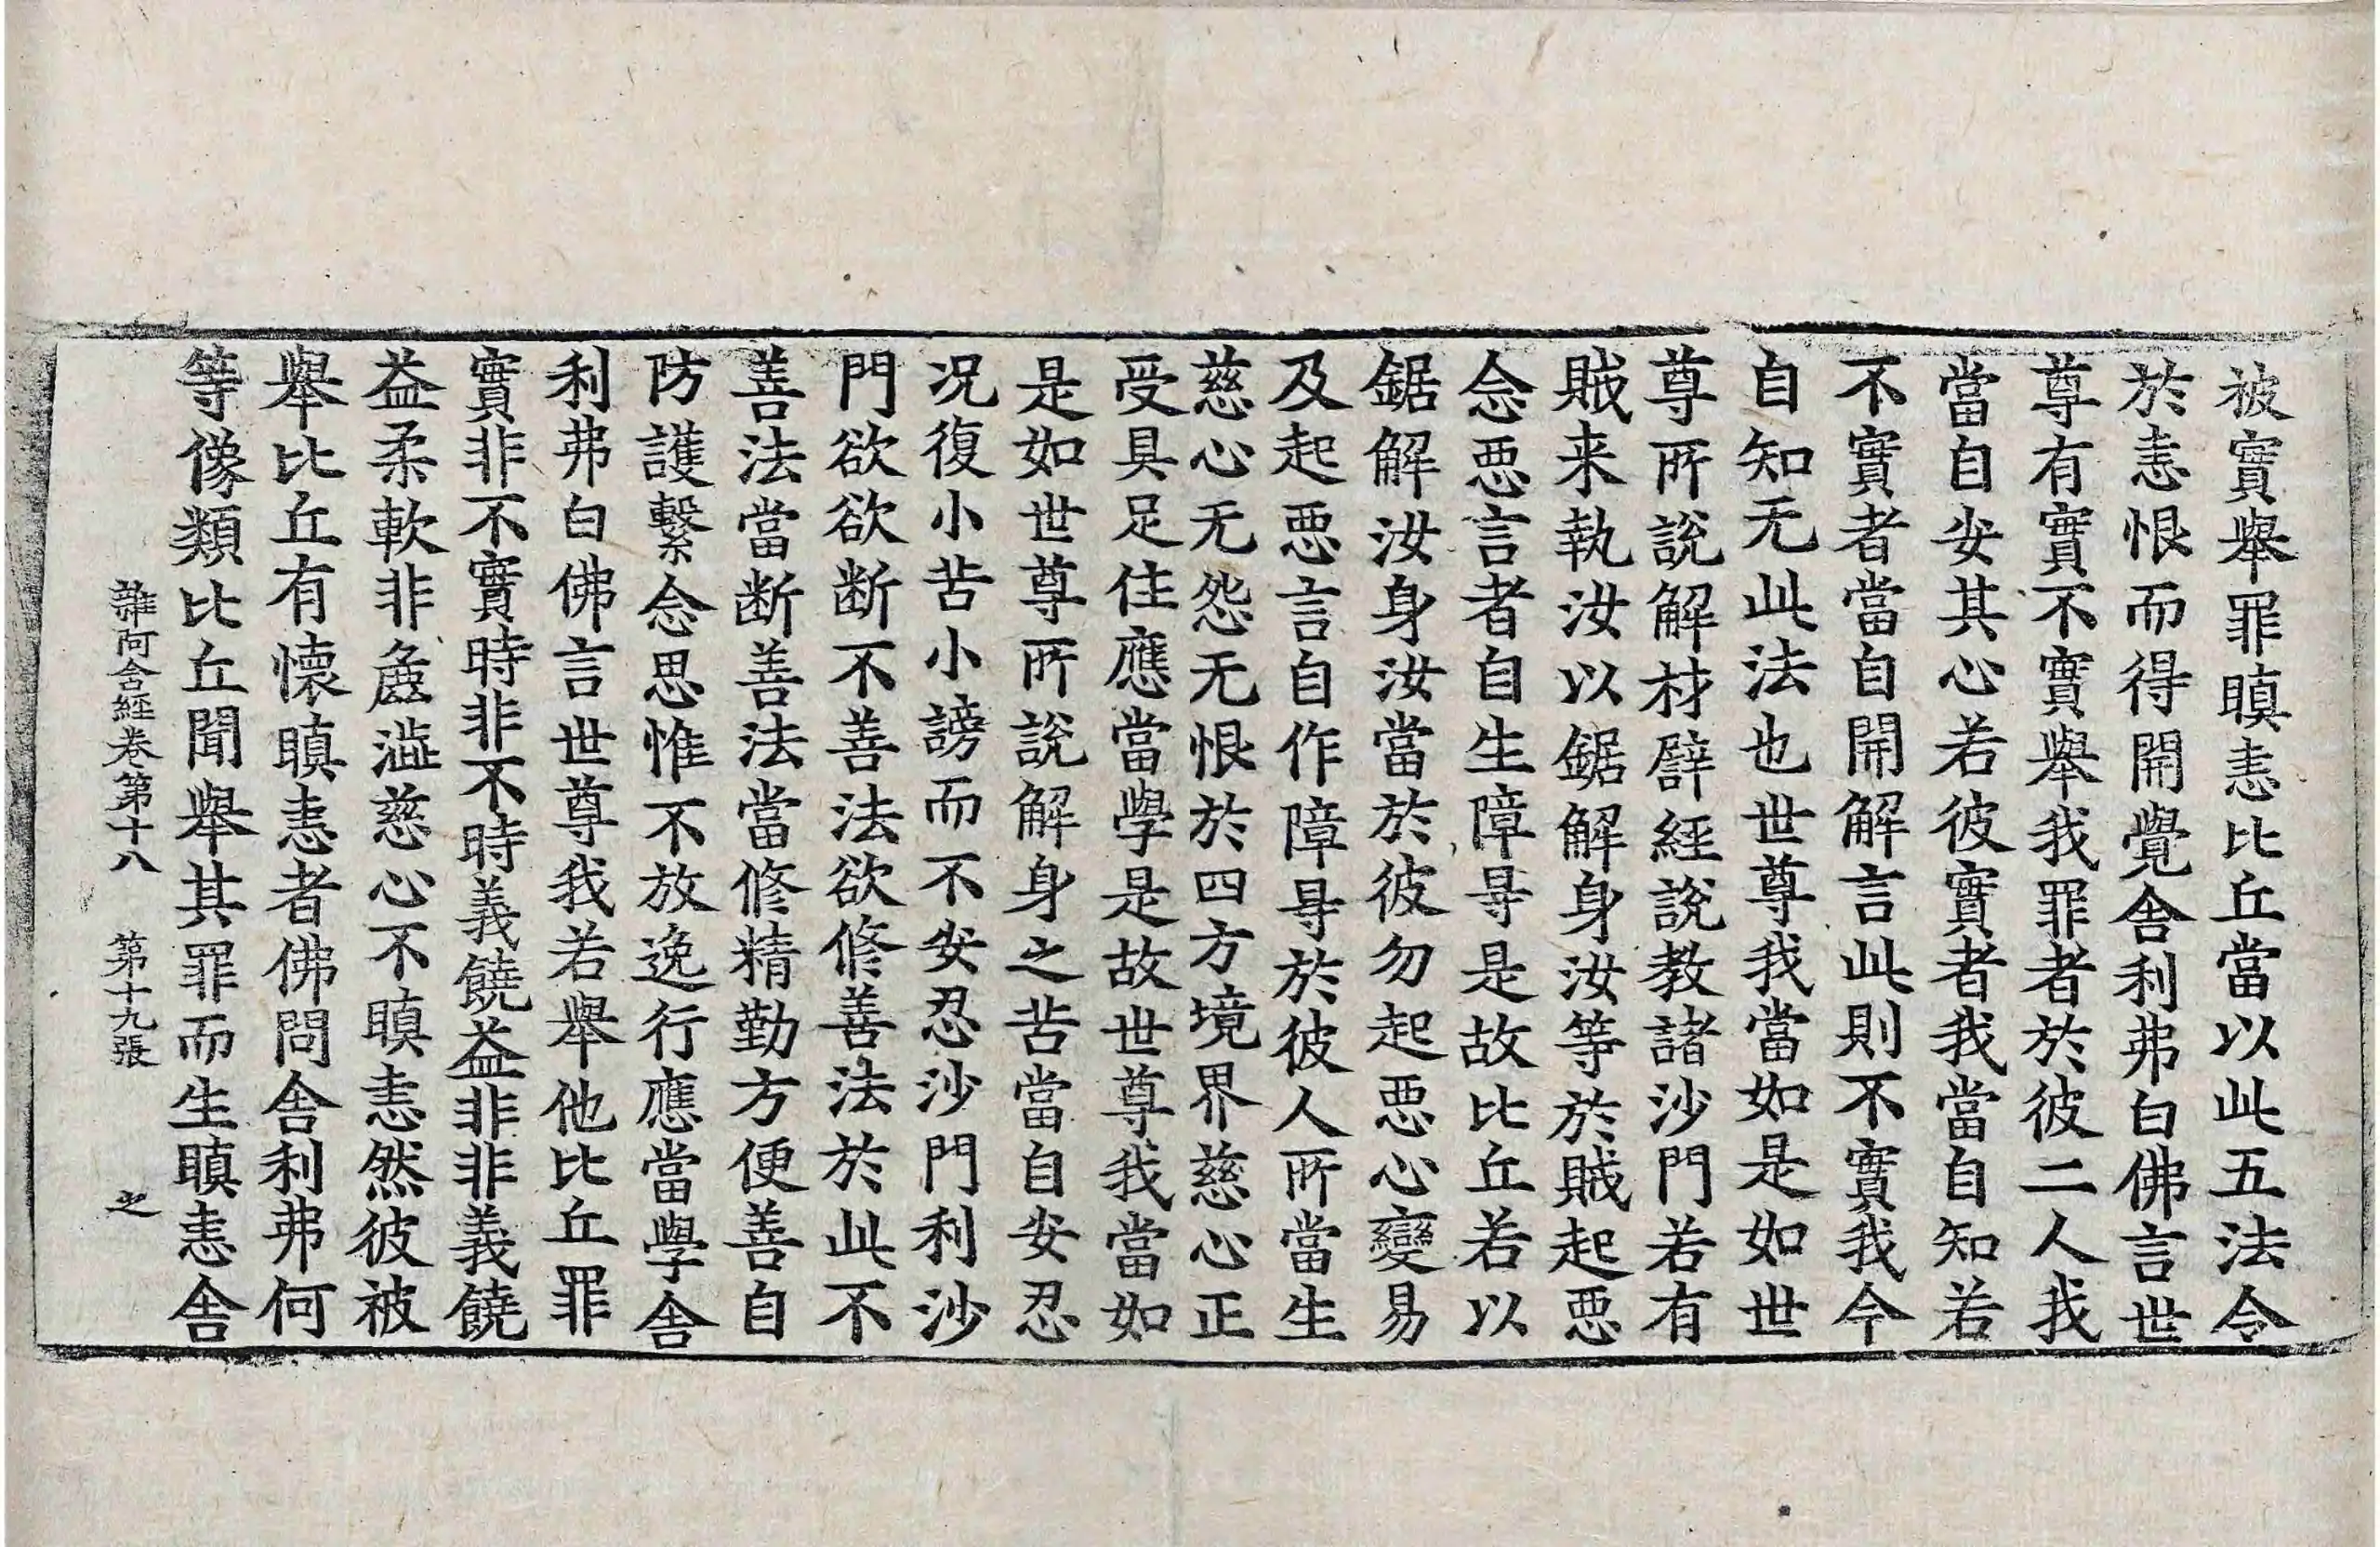 被實舉罪瞋恚比丘當以此五法令
於恚恨而得開覺舍利弗白佛言世
尊有實不實舉我罪者於彼二人我
當自安其心若彼實者我當自知若
不實者當自開解言此則不實我今
自知无此法也世尊我當如是如世
尊所說解材譬經說教諸沙門若有
賊来執汝以鋸解身汝等於賊起惡
念惡言者自生障㝵是故比丘若以
鋸解汝身汝當於彼勿起惡心變易
及起惡言自作障㝵於彼人所當生
慈心无怨无恨於四方境界慈心正
受具足住應當學是故世尊我當如
是如世尊所說解身之苦當自安忍
况復小苦小謗而不安忍沙門利沙
門欲欲断不善法欲修善法於此不
善法當断善法當修精勤方便善自
防護繫念思惟不放逸行應當學舍
利弗白佛言世尊我若舉他比丘罪
實非不實時非不時義饒益非非義饒
益柔軟非麁澁慈心不瞋恚然彼被
舉比丘有懷瞋恚者佛問舍利弗何
等像類比丘聞舉其罪而生瞋恚舍
雜阿含經卷第十八 第十九張 之